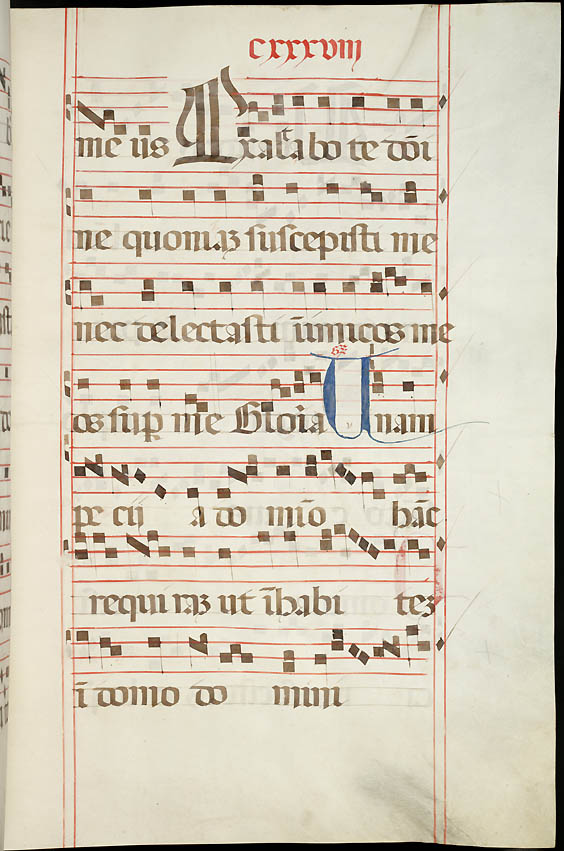 cxxxviii
me us Exaltabo te dñi
ne quoniaʒ suscepisti me
nec delectasti īimicos me
os sup me Gloīa Unam
pe cii a do mīo hāc
requi raʒ ut īhabi teʒ
ī domo do mini